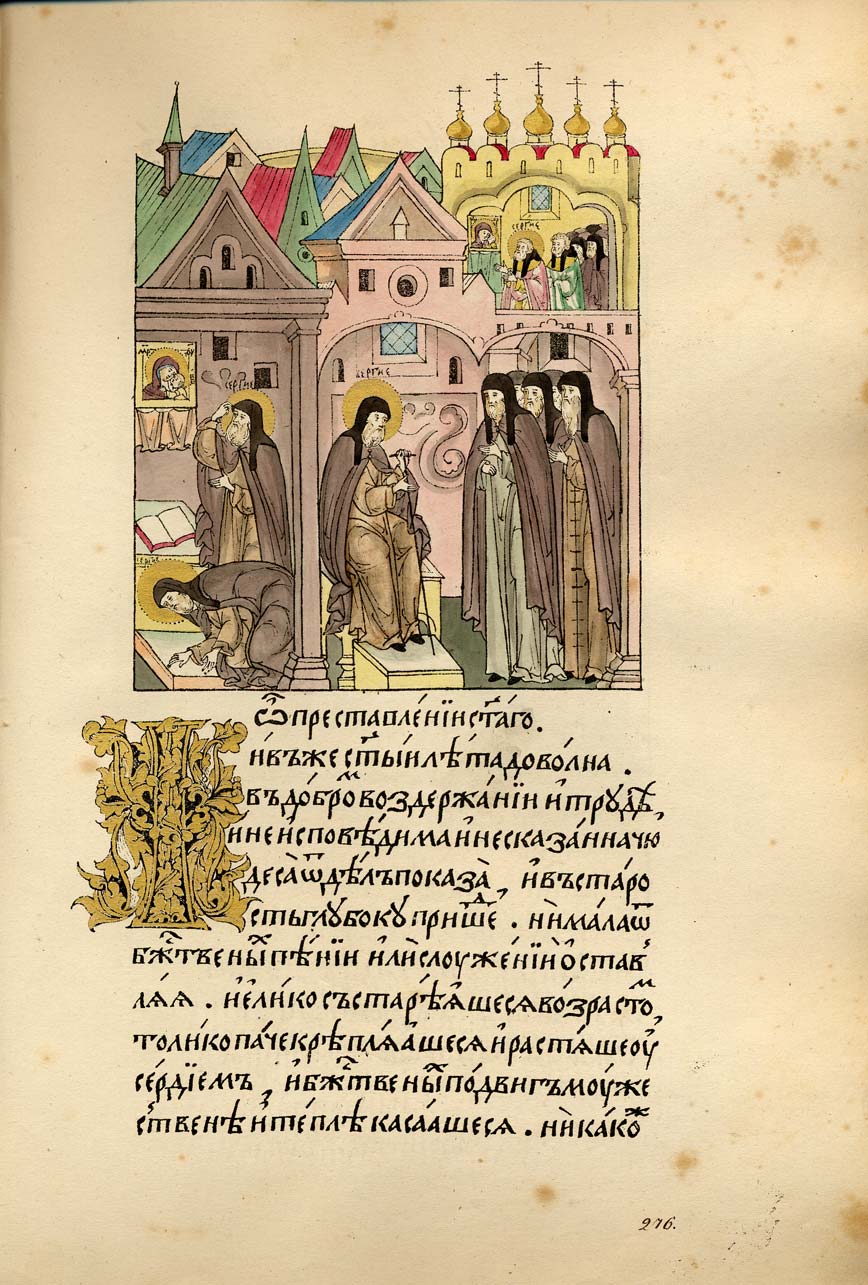 СЕРГИЕ
СЕРГИЕ
СЕРГИЕ
СЕРГИЕ
Ѿ преставле́нїи ст҃а́го.
Жи́въ же ст҃ы́и лѣ́та дово́лна.
въ до́брⷪ҇мъ воздержа́нїи и҆ труⷣ҇ѣхъ,
и неи҆сповѣ́дима и҆ несказа́нна чю
деса̀ ѿ дѣ́лъ показа̀, и҆ въ ста́ро
сть глꙋбокꙋ пришеⷣ҇. ни̑ ма́ла ѿ
бжⷭ҇твены́хъ пѣ́нїи и҆лѝ слоуже́нїи ѻ҆став
лѧ́ѧ. и҆ е҆ли́ко състарѣ́ѧшесѧ во́зрастоⷨ,
толи́ко па́че крѣплѧ́ашесѧ и҆ растѧ́ше оу҆
се́рдїемъ, и҆ бжⷭ҇твены́хъ по́двигъ моу́же
ственѣ и҆ те́плѣ каса́ашесѧ. ни̑како́ⷤ
276.